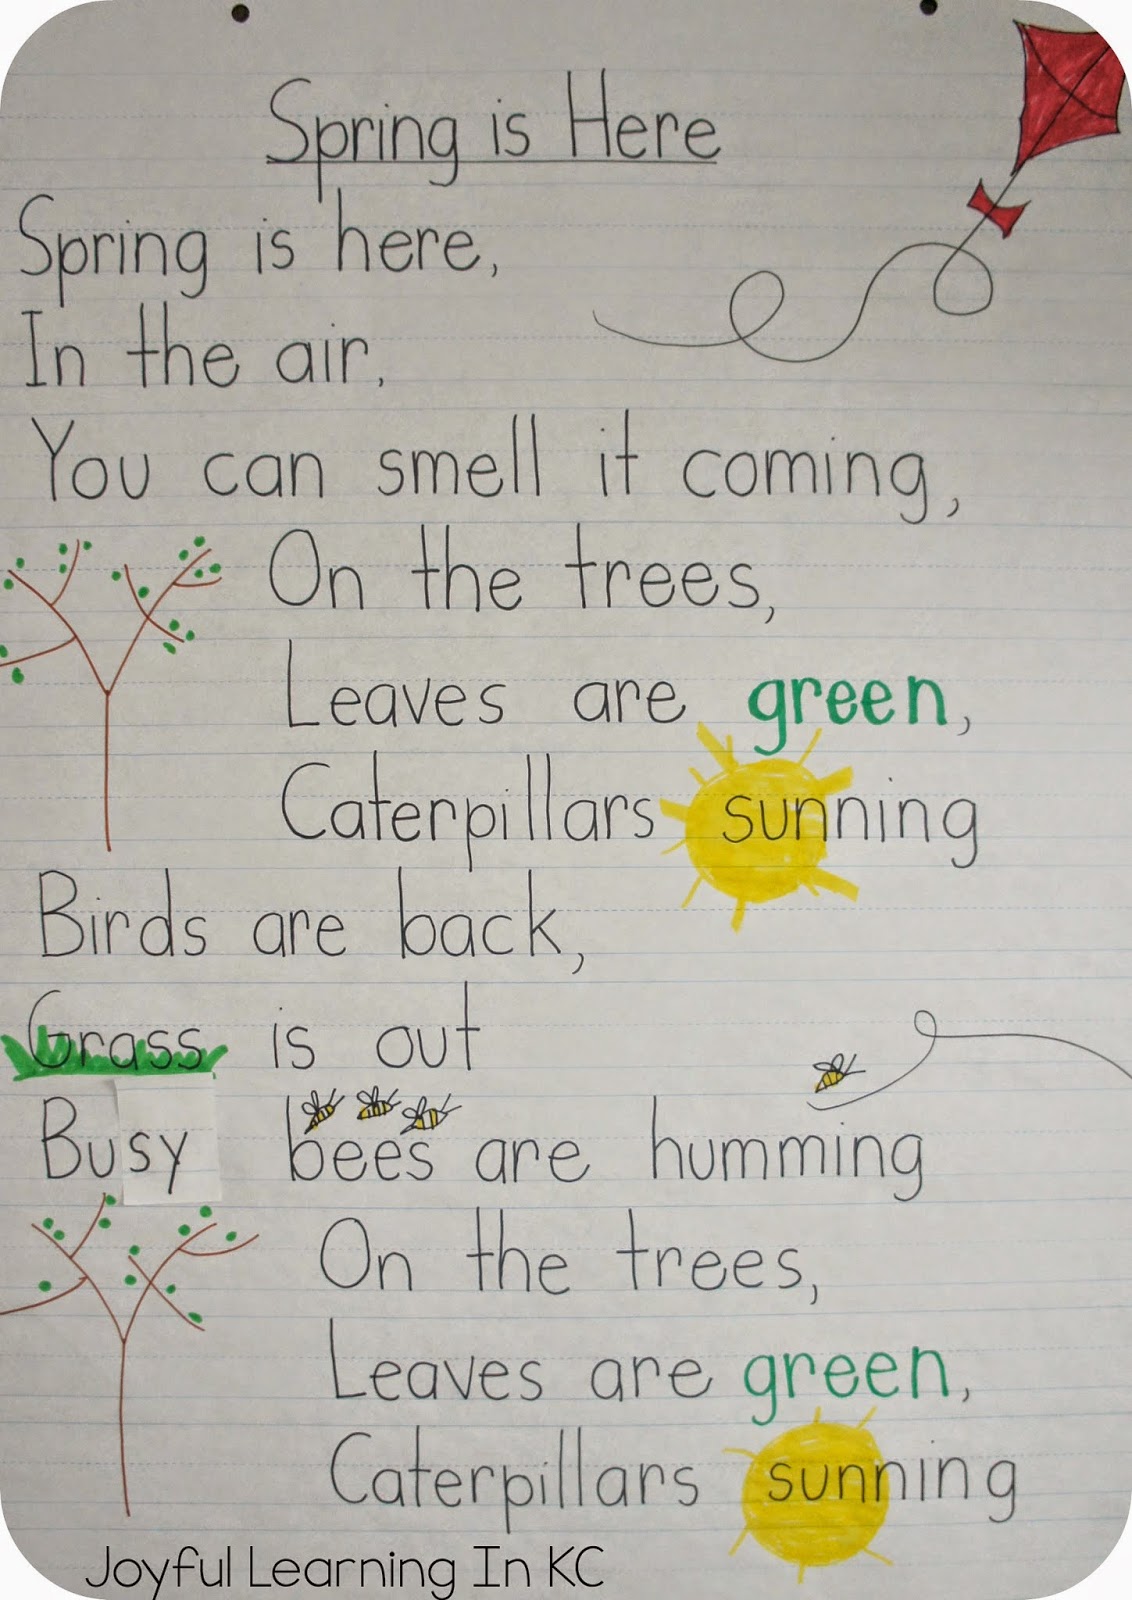 Spring is Here
Spring is here,
In the air,
You can smell it coming,
On the trees,
Leaves are green,
Caterpillars sunning
Birds are back,
Grass is out
Busy bees are humming
On the trees,
Leaves are green,
Caterpillars sunning
Joyful Learning In KC